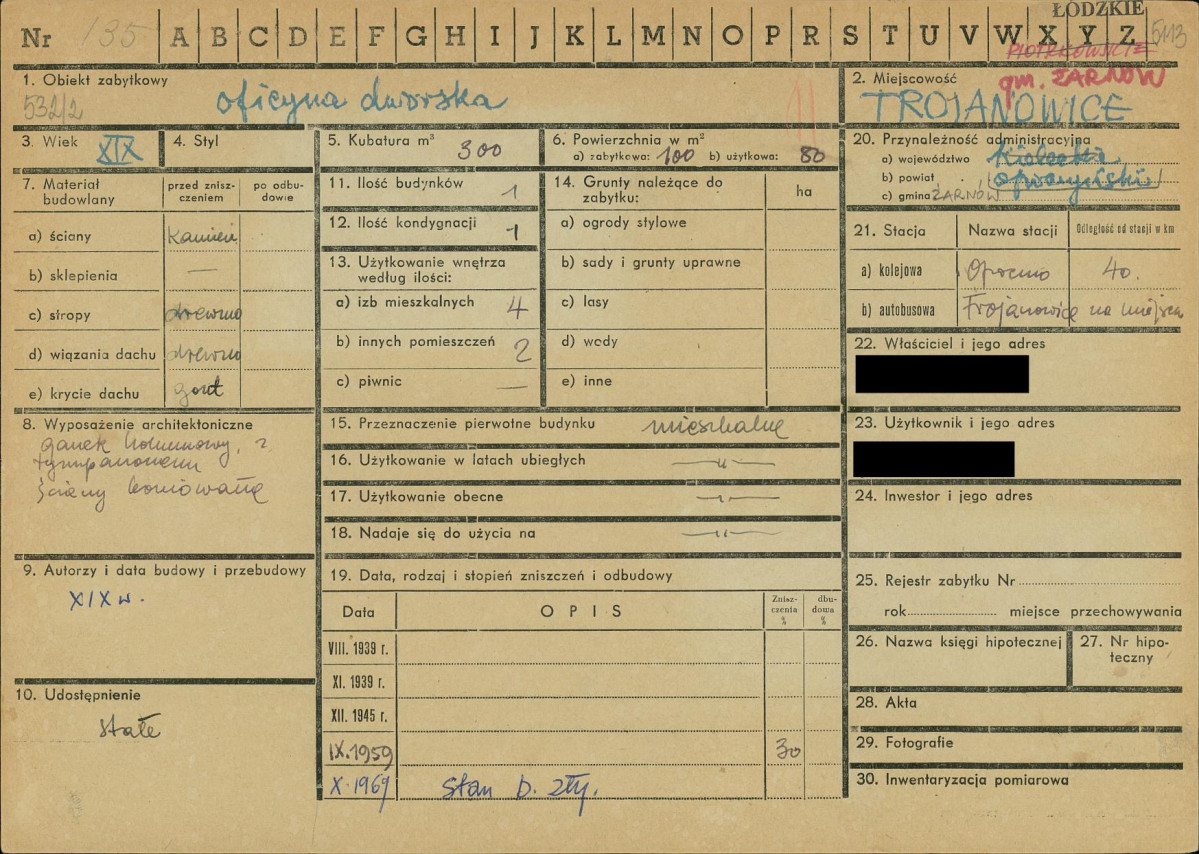 ŁÓDZKIE
Nr 135 A B C D E F G H I J K L M N O P R S T U V W X Y Z 5113
PIOTRKOWSKIE
gm. ŻARNÓW
1. Obiekt zabytkowy
532/2
oficyna dworska
2. Miejscowość
TROJANOWICE
3. Wiek XIX
4. Styl
5. Kubatura m³ 300
6. Powierzchnia w m²
a) zabytkowa: 100 b) użytkowa: 80
7. Materiał budowlany
przed znisz-
czeniem
po odbu-
dowie
a) ściany kamień
b) sklepienia —
c) stropy drewno
d) wiązania dachu drewno
e) krycie dachu gont
8. Wyposażenie architektoniczne
ganek kolumnowy, z
tympanonem
ściany boniowane
9. Autorzy i data budowy i przebudowy
XIX w.
10. Udostępnienie
stałe
11. Ilość budynków 1
12. Ilość kondygnacji 1
13. Użytkowanie wnętrza
według ilości:
a) izb mieszkalnych 4
b) innych pomieszczeń 2
c) piwnic —
14. Grunty należące do
zabytku:
ha
a) ogrody stylowe
b) sady i grunty uprawne
c) lasy
d) wody
e) inne
15. Przeznaczenie pierwotne budynku mieszkalne
16. Użytkowanie w latach ubiegłych —"—
17. Użytkowanie obecne —"—
18. Nadaje się do użycia na —"—
19. Data, rodzaj i stopień zniszczeń i odbudowy
Data
OPIS
Znisz-
czenia
%
dbu-
dowa
%
VIII. 1939 r.
XI. 1939 r.
XII. 1945 r.
IX.1959 30
X.1967 stan b. zły.
20. Przynależność administracyjna
a) województwo Kieleckie
b) powiat opoczyński
c) gmina ŻARNÓW
21. Stacja
Nazwa stacji
Odległość od stacji w km
a) kolejowa Opoczno 40.
b) autobusowa Trojanowice na miejscu
22. Właściciel i jego adres
23. Użytkownik i jego adres
24. Inwestor i jego adres
25. Rejestr zabytku Nr
rok miejsce przechowywania
26. Nazwa księgi hipotecznej
27. Nr hipo-
teczny
28. Akta
29. Fotografie
30. Inwentaryzacja pomiarowa